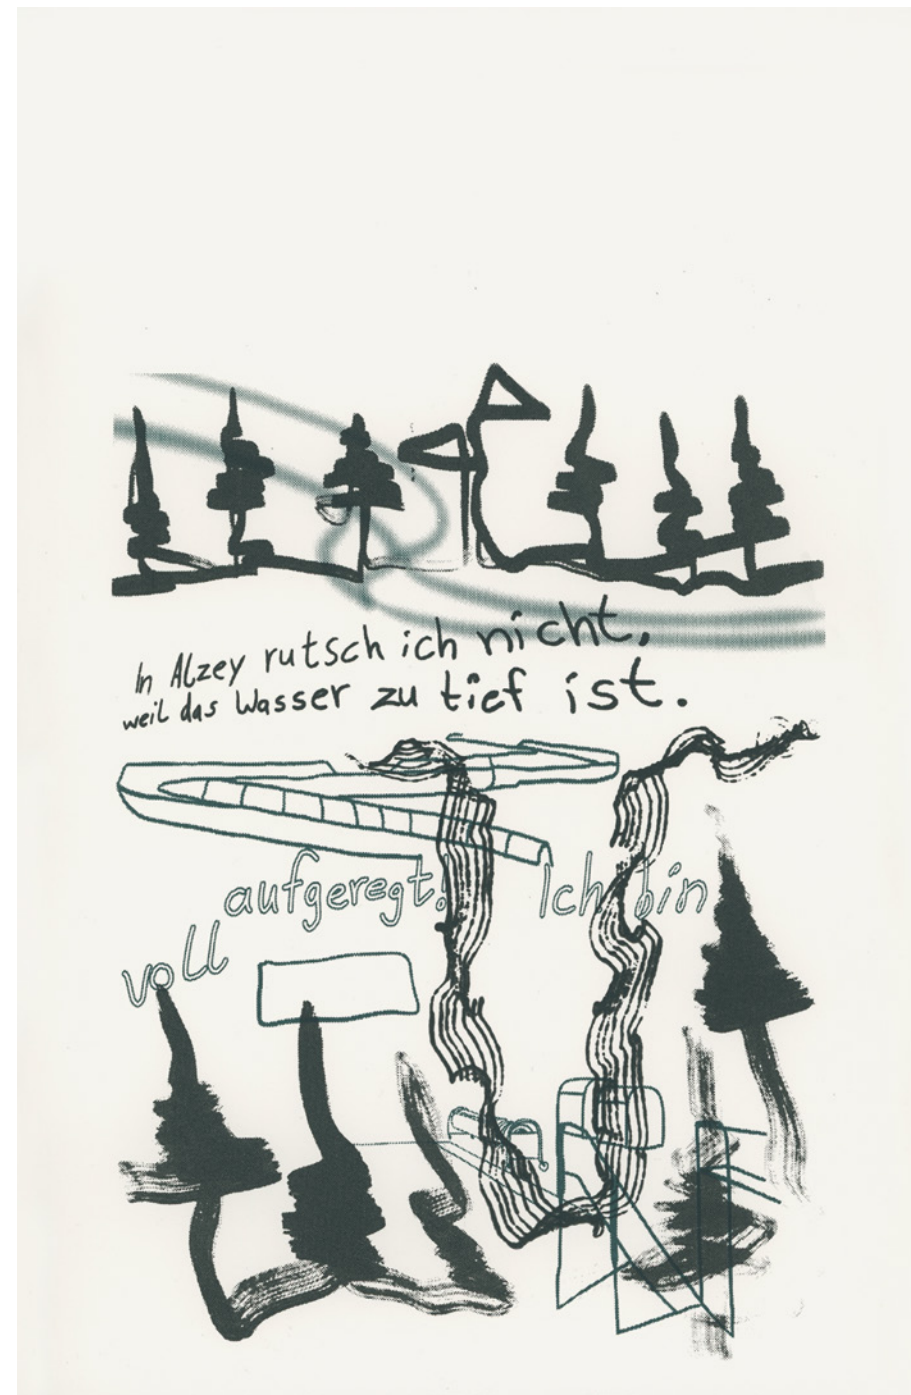 In Alzey rutsch ich nicht,
weil das Wasser zu tief ist.
Ich bin
voll aufgeregt!